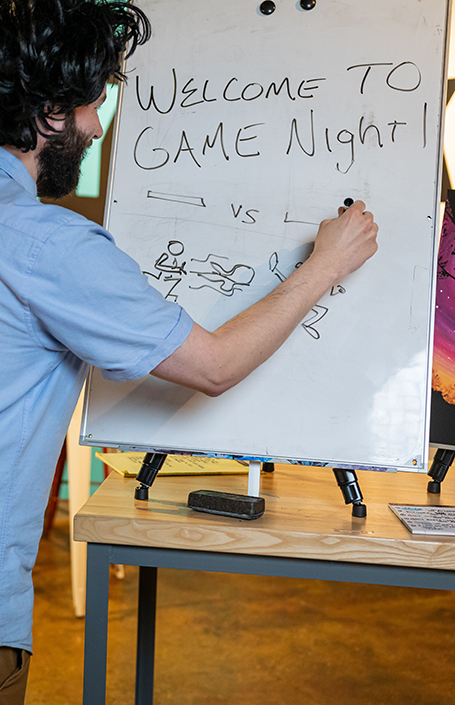 WELCOME TO
GAME Night!
vs